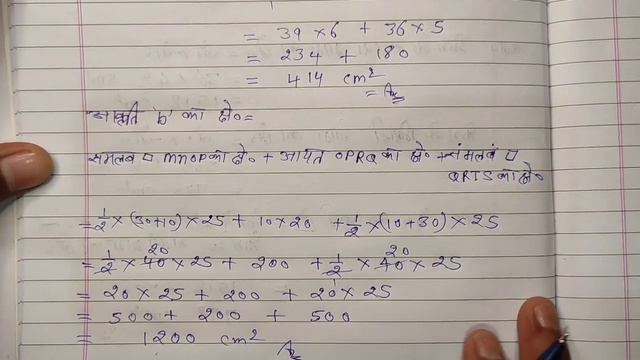 = 39 × 6 + 36 × 5
= 234 + 180
= 414 cm²
= Ans
आकृति 'b' का क्षे० =
समलंब □ MNOP का क्षे० + आयत OPRQ का क्षे० + समलंब □
QRTS का क्षे०
= 1/2 × (30+10) × 25 + 10 × 20 + 1/2 × (10+30) × 25
20 20
= 1/2 × 40 × 25 + 200 + 1/2 × 40 × 25
= 20 × 25 + 200 + 20 × 25
= 500 + 200 + 500
= 1200 cm² Ans